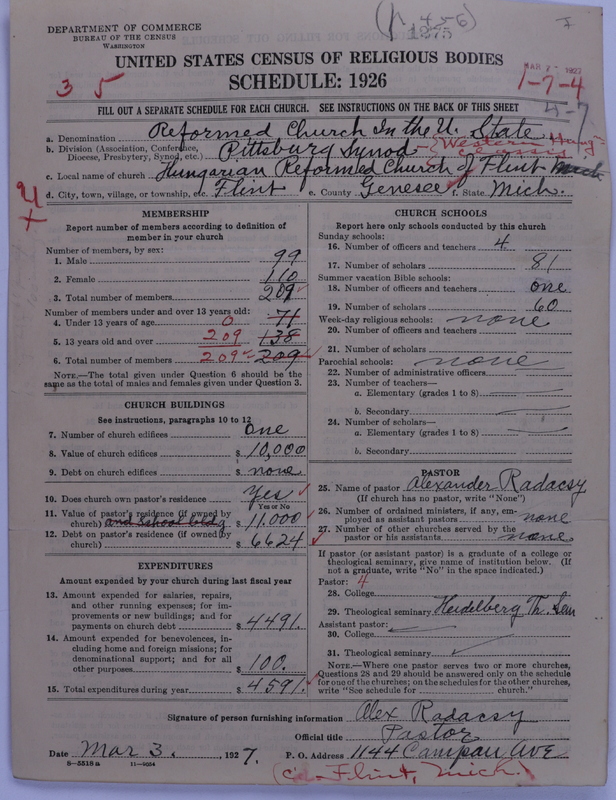 (1456)
1375
DEPARTMENT OF COMMERCE
BUREAU OF THE CENSUS
WASHINGTON
UNITED STATES CENSUS OF RELIGIOUS BODIES
SCHEDULE: 1926
MAR 7 - 1927
3 5
1-7-4
4-7
FILL OUT A SEPARATE SCHEDULE FOR EACH CHURCH. SEE INSTRUCTIONS ON THE BACK OF THIS SHEET
a. Denomination Reformed Church In the U. State
b. Division (Association, Conference, Diocese, Presbytery, Synod, etc.) Pittsburg Synod Western Hung Classis
c. Local name of church Hungarian Reformed Church of Flint Mich
d. City, town, village, or township, etc. Flint e. County Genesee f. State Mich.
MEMBERSHIP
Report number of members according to definition of
member in your church
Number of members, by sex:
1. Male 99
2. Female 110
3. Total number of members 209
Number of members under and over 13 years old:
4. Under 13 years of age 0 71
5. 13 years old and over 209 138
6. Total number of members 209 209
NOTE.—The total given under Question 6 should be the
same as the total of males and females given under Question 3.
CHURCH BUILDINGS
See instructions, paragraphs 10 to 12
7. Number of church edifices One
8. Value of church edifices $ 10,000
9. Debt on church edifices $ none
10. Does church own pastor's residence Yes
Yes or No
11. Value of pastor's residence (if owned by
church) and School bldg $ 11,000
12. Debt on pastor's residence (if owned by
church) $ 6624
EXPENDITURES
Amount expended by your church during last fiscal year
13. Amount expended for salaries, repairs,
and other running expenses; for im-
provements or new buildings; and for
payments on church debt $ 4491.
14. Amount expended for benevolences, in-
cluding home and foreign missions; for
denominational support; and for all
other purposes $ 100.
15. Total expenditures during year $ 4591.
CHURCH SCHOOLS
Report here only schools conducted by this church
Sunday schools:
16. Number of officers and teachers 4
17. Number of scholars 81
Summer vacation Bible schools:
18. Number of officers and teachers one
19. Number of scholars 60
Week-day religious schools: none
20. Number of officers and teachers
21. Number of scholars
Parochial schools: none
22. Number of administrative officers
23. Number of teachers—
a. Elementary (grades 1 to 8)
b. Secondary
24. Number of scholars—
a. Elementary (grades 1 to 8)
b. Secondary
PASTOR
25. Name of pastor Alexander Radacsy
(If church has no pastor, write "None")
26. Number of ordained ministers, if any, em-
ployed as assistant pastors none
27. Number of other churches served by the
pastor or his assistants none
If pastor (or assistant pastor) is a graduate of a college or
theological seminary, give name of institution below. (If
not a graduate, write "No" in the space indicated.)
Pastor: 4
28. College
29. Theological seminary Heidelberg Th. Sem
Assistant pastor:
30. College
31. Theological seminary
NOTE.—Where one pastor serves two or more churches,
Questions 28 and 29 should be answered only on the schedule
for one of the churches; on the schedules for the other churches,
write "See schedule for church."
Signature of person furnishing information Alex Radacsy
Official title Pastor
Date Mar 3. , 1927. P. O. Address 1144 Campau Ave
8—5518a 11—9054
Flint, Mich.)